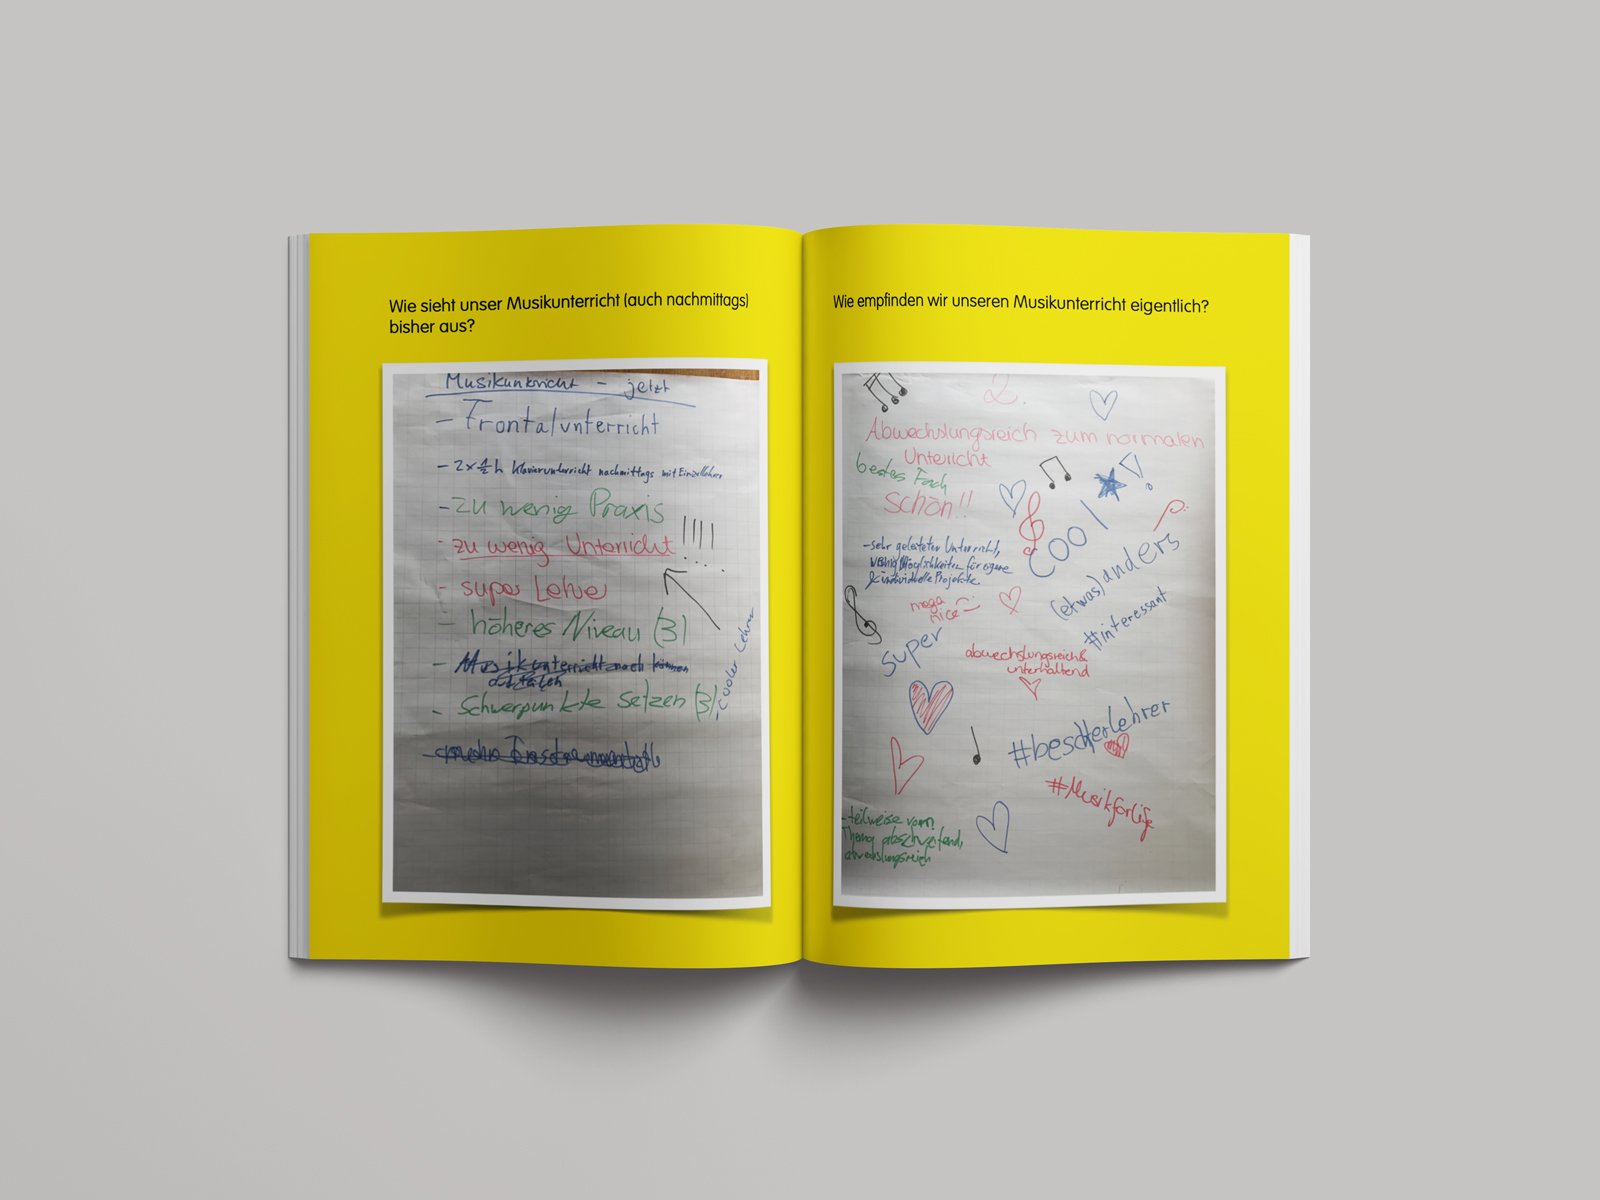 Wie sieht unser Musikunterricht (auch nachmittags)
bisher aus?
Musikunterricht - jetzt
- Frontalunterricht
- 2x ½ h Klavierunterricht nachmittags mit Einzellehrer
- zu wenig Praxis
- zu wenig Unterricht !!!!
- super Lehrer
- höheres Niveau (3)
- Musikunterricht nach können
aufteilen
- Schwerpunkte setzen (3)
- cooler Lehrer
- mehr
Wie empfinden wir unseren Musikunterricht eigentlich?
2.
Abwechslungsreich zum normalen
Unterricht
bestes Fach
schön!!
Cool
- sehr geleiteter Unterricht,
wenig Möglichkeiten für eigene
& individuelle Projekte
(etwas) anders
mega
nice
#interessant
super
abwechslungsreich &
unterhaltend
#beschterlehrer
#Musikforlife
- teilweise vom
Thema abschweifend,
abwechslungsreich